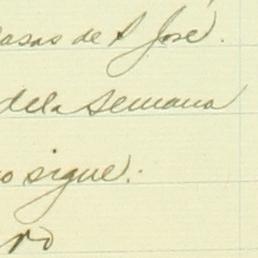 casas de S José.
dela semana
o sigue: